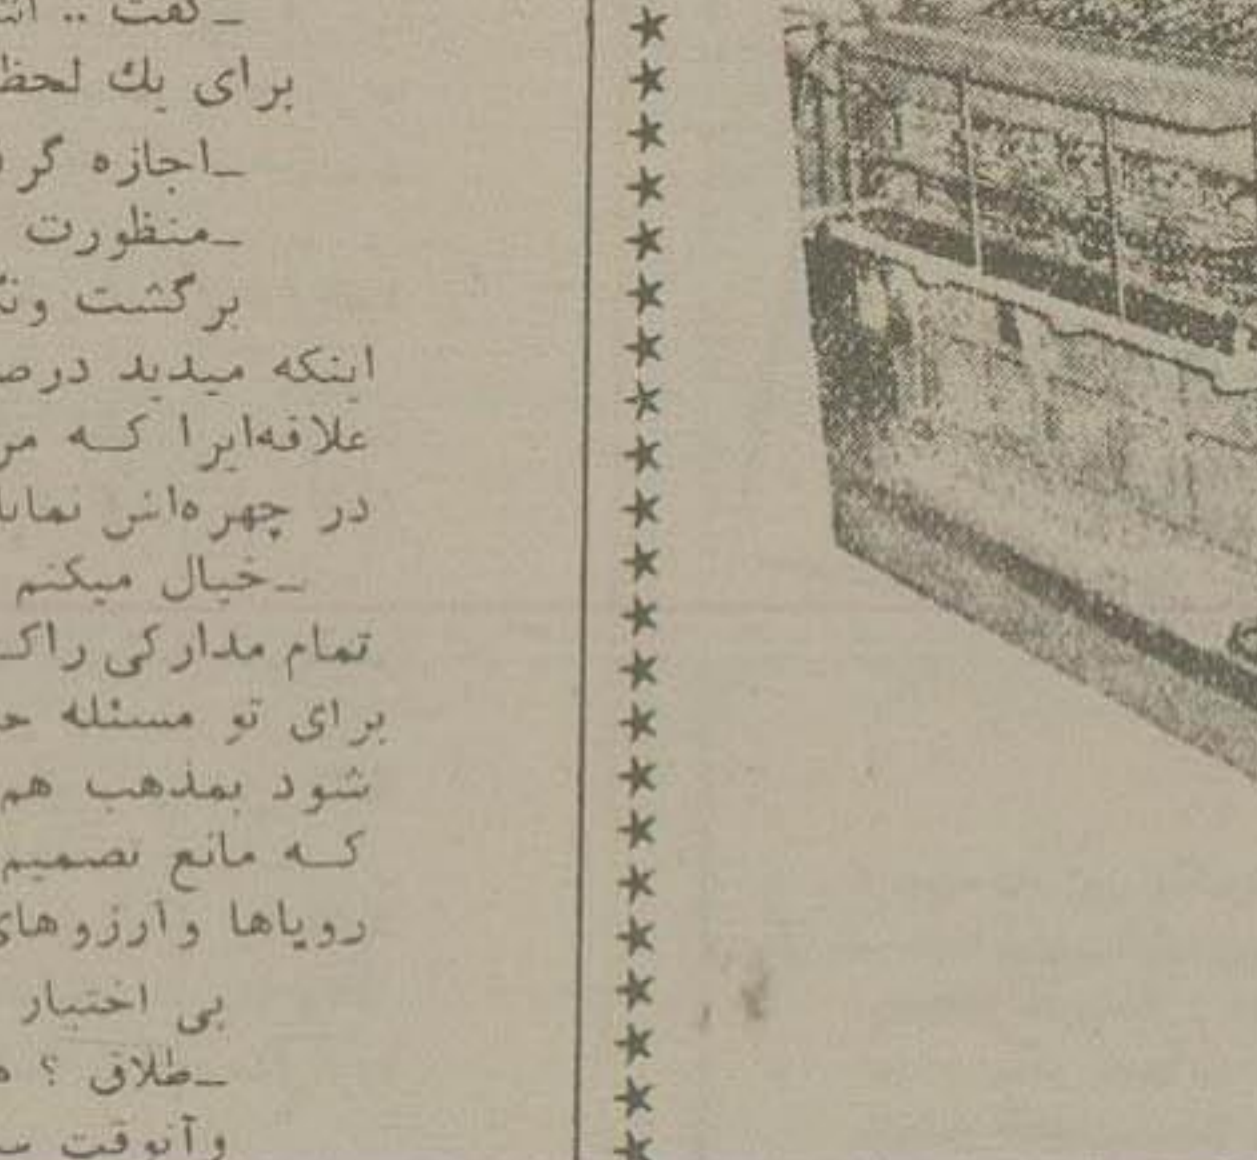 _گفت ..
برای یک لحظ
_اجازه گر
_منظورت
برگشت ون
اینکه میدید درص
علاقه‌ایرا که مر
در چهره‌اش نمایا
_خیال میکنم
تمام مدارکی راک
برای تو مسئله ح
شود بمذهب هم
که مانع تصمیم
رویاها وآرزوهای
بی اختیار
_طلاق ؟
وآنوقت